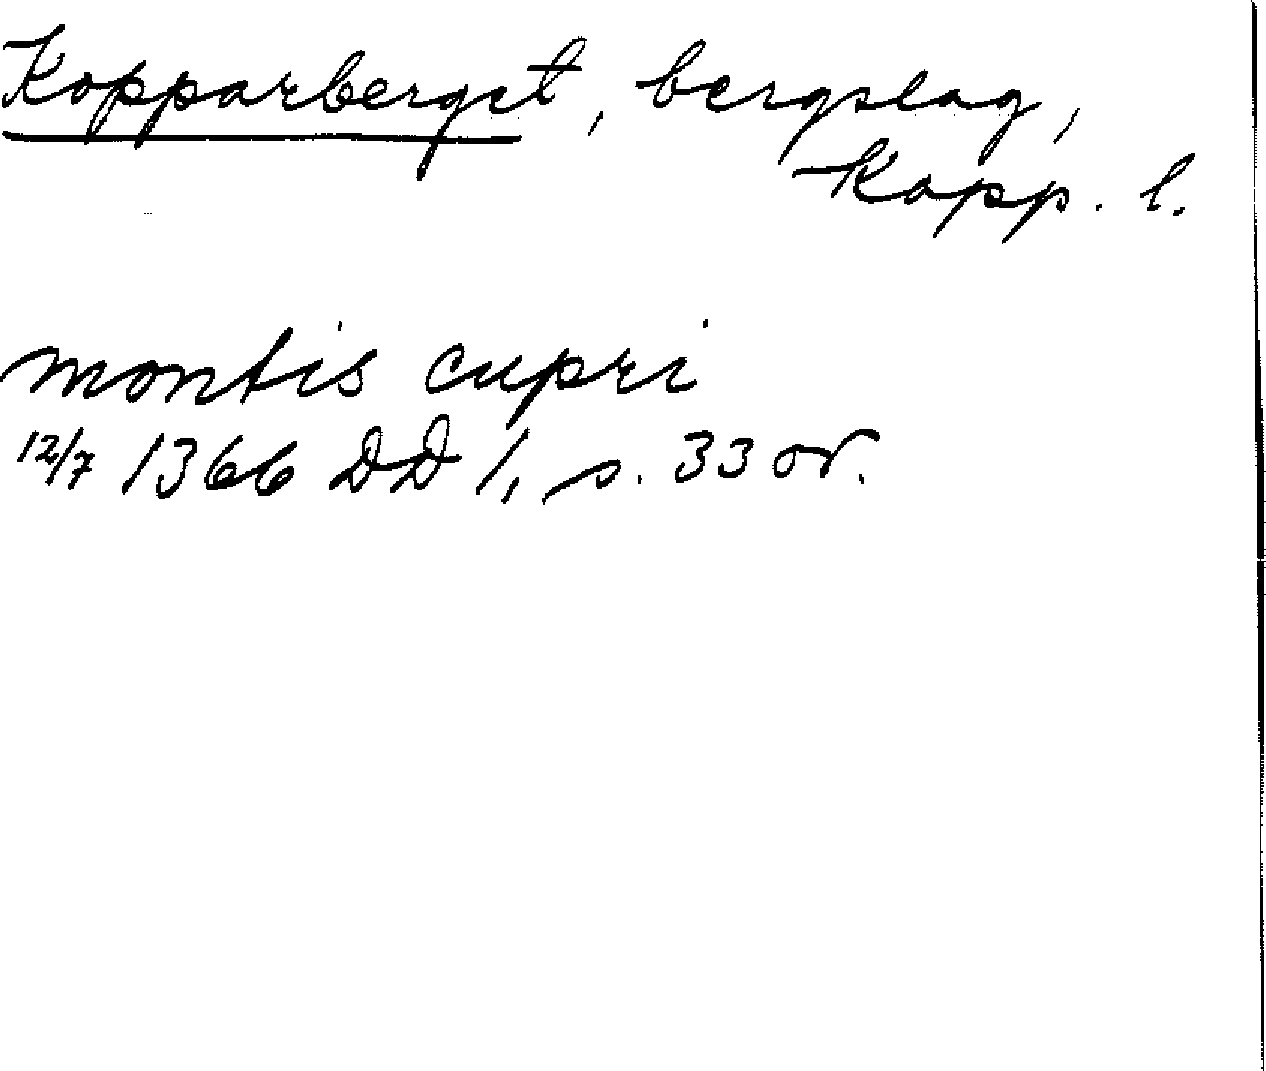 Kopparberget, bergslag,
Kopp. l.
montis cupri
12/7 1366 DD 1, s. 33 or.